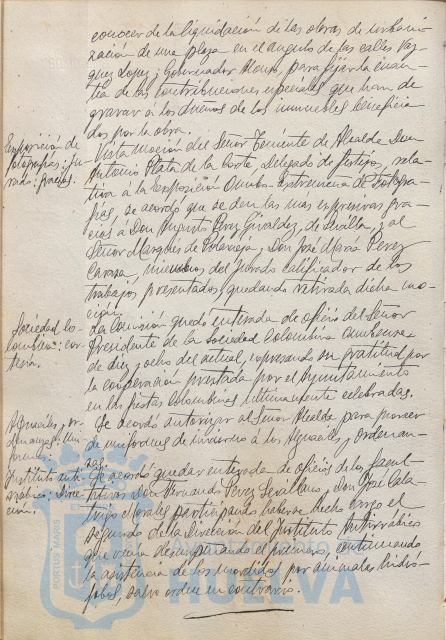 conocer de la liquidación de las obras de urbani-
zación de una plaza en el angulo de las calles Vaz-
quez Lopez y Gobernador Alonso, para fijar la cuan-
tia de las contribuciones especiales que han de
gravar a los dueños de los inmuebles beneficia-
dos por la obra.
Exposición de
fotografias: Ju-
rado: gracias.
Vista moción del Señor Teniente de Alcalde Don
Antonio Plata de la Corte, Delegado de festejos, rela-
tiva a la exposición Extremeña de Fotogra-
fias, se acordo que se den las mas expresivas gra-
cias á Don Augusto Perez Giraldez, de Sevilla, y al
Señor Marqués de y Don José Maria Perez
Carasa, miembros del Jurado calificador de los
trabajos presentados, quedando retirada dicha mo-
cion.
Sociedad Co-
lombina: cor-
tesia.
La Comisión quedó enterada de oficio del Señor
Presidente de la Sociedad Colombina Onubense
de diez y ocho del actual, expresando su gratitud por
la cooperación prestada por el Ayuntamiento
en las fiestas Colombinas ultimamente celebradas.
Alguaciles y or-
denanzas: Uni-
formes.
Se acordo autorizar al Señor Alcalde para proveer
de uniformes de invierno a los Alguaciles y Ordenan-
zas.
Instituto anti-
rrabico: Direc-
cion.
Se acordó quedar enterada de oficios de los facul-
tativos Don Fernando Perez Sevillano, Don José Cala-
trigo Morales participando haberse hecho cargo el
segundo de la Dirección del Instituto Antirrabico
que venia desempeñando el primero, continuando
la asistencia de los mordidos por animales hidro-
fobos, salvo orden en contrario.
PORTUS MARIS
HUELVA